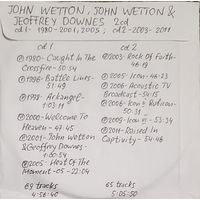 JOHN WETTON, JOHN WETTON &
GEOFFREY DOWNES 2cd
cd 1- 1980-2001, 2005; cd 2-2003- 2011
cd 1
℗1980- Caught In The
Crossfire- 50:54
℗1996- Battle Lines-
51:49
℗1998- Arkangel-
1:03:11
℗2000-Welcome To
Heaven- 47:45
℗2001- John Wetton
& Geoffrey Downes-
1:00:54
℗2005- Heat Of The
Moment-05- 22:04
69 tracks
4:56:40
cd 2
℗2003-Rock Of Faith-
46:19
℗2005- Icon- 46:23
℗2006- Acoustic TV
Broadcast- 54:15
℗2006- Icon II: Rubicon-
℗2009-Icon III- 53:34
℗2011-Raised In
Captivity- 54:46
65 tracks
5:05:50